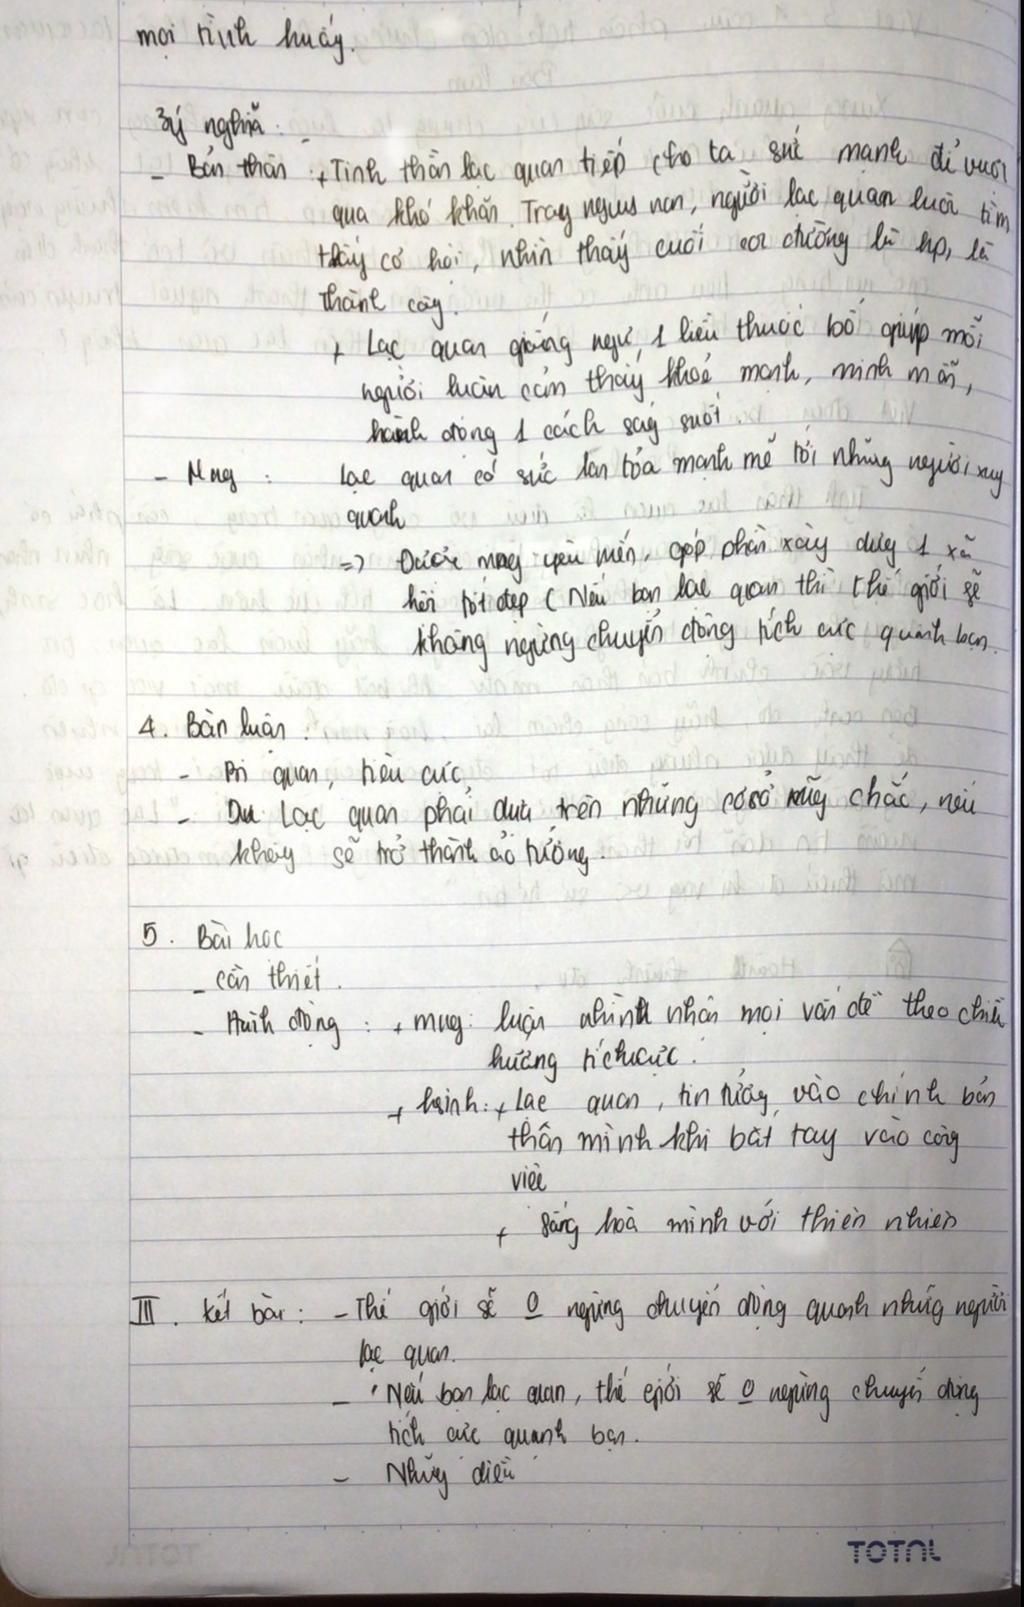 mọi tình huống.
3, ý nghĩa:
- Bản thân: + Tinh thần lạc quan tiếp cho ta sức mạnh để vượt
qua khó khăn. Trong nguy nan, người lạc quan luôn tìm
thấy cơ hội, nhìn thấy cuối con đường là hp, là
thành công.
+ Lạc quan giống như 1 liều thuốc bổ giúp mỗi
người luôn cảm thấy khoẻ mạnh, minh mẫn,
hành động 1 cách sáng suốt.
- Mng: Lạc quan có sức lan tỏa mạnh mẽ tới những người xung
quanh
=> Được mng yêu mến, góp phần xây dựng 1 xã
hội tốt đẹp (Nếu bạn lạc quan thì thế giới sẽ
không ngừng chuyển động tích cực quanh bạn.
4. Bàn luận:
- Bi quan, tiêu cực
- Lạc quan phải dựa trên những cơ sở vững chắc, nếu
không sẽ trở thành ảo tưởng.
5. Bài học
- cần thiết.
- Hành động: + mng: luôn nhìn nhận mọi vấn đề theo chiều
hướng tích cực.
+ hs mình: + Lạc quan, tin tưởng vào chính bản
thân mình khi bắt tay vào công
việc
+ sống hoà mình với thiên nhiên
III. Kết bài: - Thế giới sẽ 0 ngừng chuyển động quanh những người
lạc quan.
- 'Nếu bạn lạc quan, thế giới sẽ 0 ngừng chuyển động
tích cực quanh bạn.
- Những điều
TOTAL